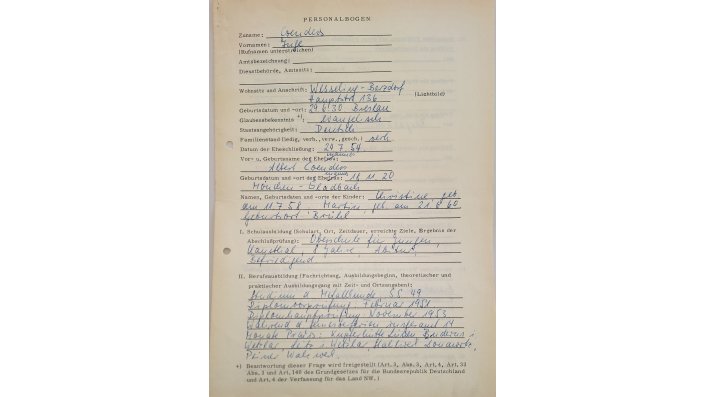 PERSONALBOGEN
Zuname: Coenders
Vornamen: Inge
(Rufnamen unterstreichen)
Amtsbezeichnung:
Dienstbehörde, Amtssitz:
Wohnsitz und Anschrift: Wesseling-Berzdorf
Hauptstr 136
(Lichtbild)
Geburtsdatum und -ort: 29 6 30 Breslau
Glaubensbekenntnis +): evangelisch
Staatsangehörigkeit: Deutsch
Familienstand (ledig, verh., verw., gesch.) verh
Datum der Eheschließung: 24 7 54
Vor- u. Geburtsname des Ehemannes
Albert Coenders
Geburtsdatum und -ort des Ehemannes: 14 11 20
München-Gladbach
Namen, Geburtsdaten und -orte der Kinder: Christine geb.
am 11 7 58. Martin, geb. am 21 8 60
Geburtsort Brühl
I. Schulausbildung (Schulart, Ort, Zeitdauer, erreichte Ziele, Ergebnis der
Abschlußprüfung): Oberschule für Jungen,
8 Jahre, Abitur,
Befriedigend
II. Berufsausbildung (Fachrichtung, Ausbildungsbeginn, theoretischer und
praktischer Ausbildungsgang mit Zeit- und Ortsangaben):
Studium d. Metallkunde SS 49
Diplomvorprüfung: Februar 1951
Diplomhauptprüfung November 1953
Während d. insgesamt 14
Monate Praxis: Buderus i.
Wetzlar, Leitz i. Wetzlar,
Peiner Walzwerk.
+) Beantwortung dieser Frage wird freigestellt (Art. 3, Abs. 3, Art. 4, Art. 33
Abs. 3 und Art. 140 des Grundgesetzes für die Bundesrepublik Deutschland
und Art. 4 der Verfassung für das Land NW.)